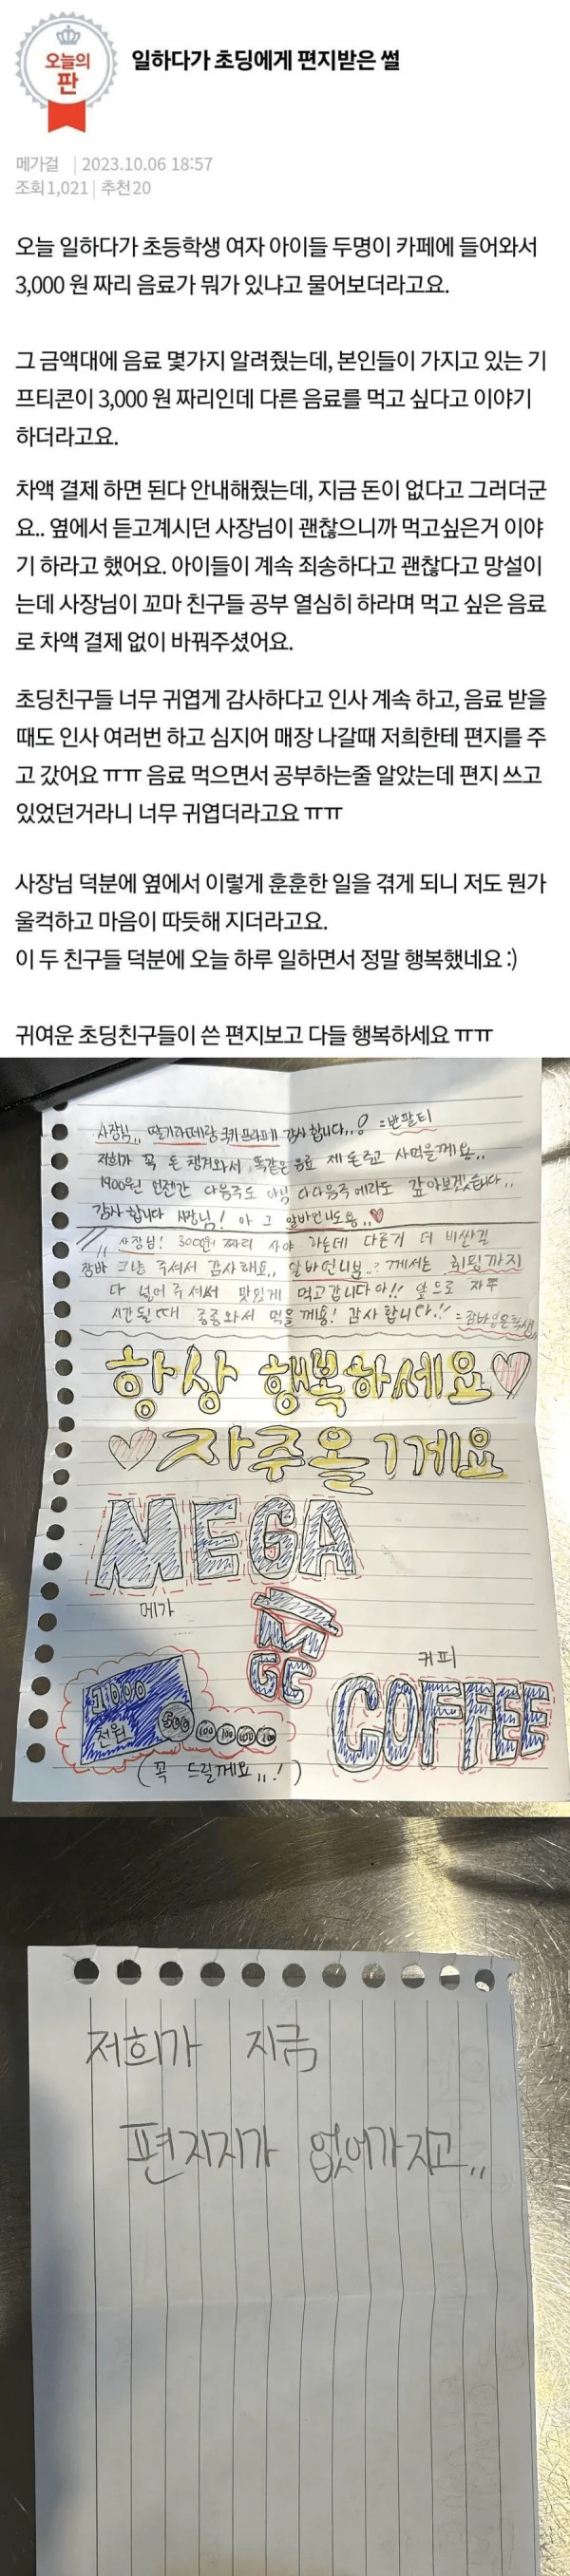 오늘의
판
일하다가 초딩에게 편지받은 썰
메가걸 | 2023.10.06 18:57
조회 1,021 | 추천 20
오늘 일하다가 초등학생 여자 아이들 두명이 카페에 들어와서
3,000 원 짜리 음료가 뭐가 있냐고 물어보더라고요.
그 금액대에 음료 몇가지 알려줬는데, 본인들이 가지고 있는 기
프티콘이 3,000 원 짜리인데 다른 음료를 먹고 싶다고 이야기
하더라고요.
차액 결제 하면 된다 안내해줬는데, 지금 돈이 없다고 그러더군
요.. 옆에서 듣고계시던 사장님이 괜찮으니까 먹고싶은거 이야
기 하라고 했어요. 아이들이 계속 죄송하다고 괜찮다고 망설이
는데 사장님이 꼬마 친구들 공부 열심히 하라며 먹고 싶은 음료
로 차액 결제 없이 바꿔주셨어요.
초딩친구들 너무 귀엽게 감사하다고 인사 계속 하고, 음료 받을
때도 인사 여러번 하고 심지어 매장 나갈때 저희한테 편지를 주
고 갔어요 ㅠㅠ 음료 먹으면서 공부하는줄 알았는데 편지 쓰고
있었던거라니 너무 귀엽더라고요 ㅠㅠ
사장님 덕분에 옆에서 이렇게 훈훈한 일을 겪게 되니 저도 뭔가
울컥하고 마음이 따듯해 지더라고요.
이 두 친구들 덕분에 오늘 하루 일하면서 정말 행복했네요 :)
귀여운 초딩친구들이 쓴 편지보고 다들 행복하세요 ㅠㅠ
사장님,, 딸기라떼랑 쿠키프라페 감사합니다..! =반팔티
저희가 꼭 돈 챙겨와서 똑같은 음료 제 돈주고 사먹을께용..
1900원 언젠간 다음주도 아님 다다음주 에라도 갚아보겠습니다..
감사합니다 사장님! 아 그 알바언니도용..♥
사장님! 3000원 짜리 사야 하는데 다른거 더 비싼걸
그냥 주셔서 감사해요,, 알바언니분..? 께서는 휘핑까지
다 넣어 주셔써 맛있게 먹고갑니다아!! 앞으로 자주
시간될때 종종와서 먹을께용! 감사합니다!!
항상 행복하세요♡
♡자주올게요
MEGA
메가
M
GC
커피
COFFEE
1000
천원
500 100 100 100 100
(꼭 드릴께요,,!)
저희가 지금
편지지가 없어가지고..